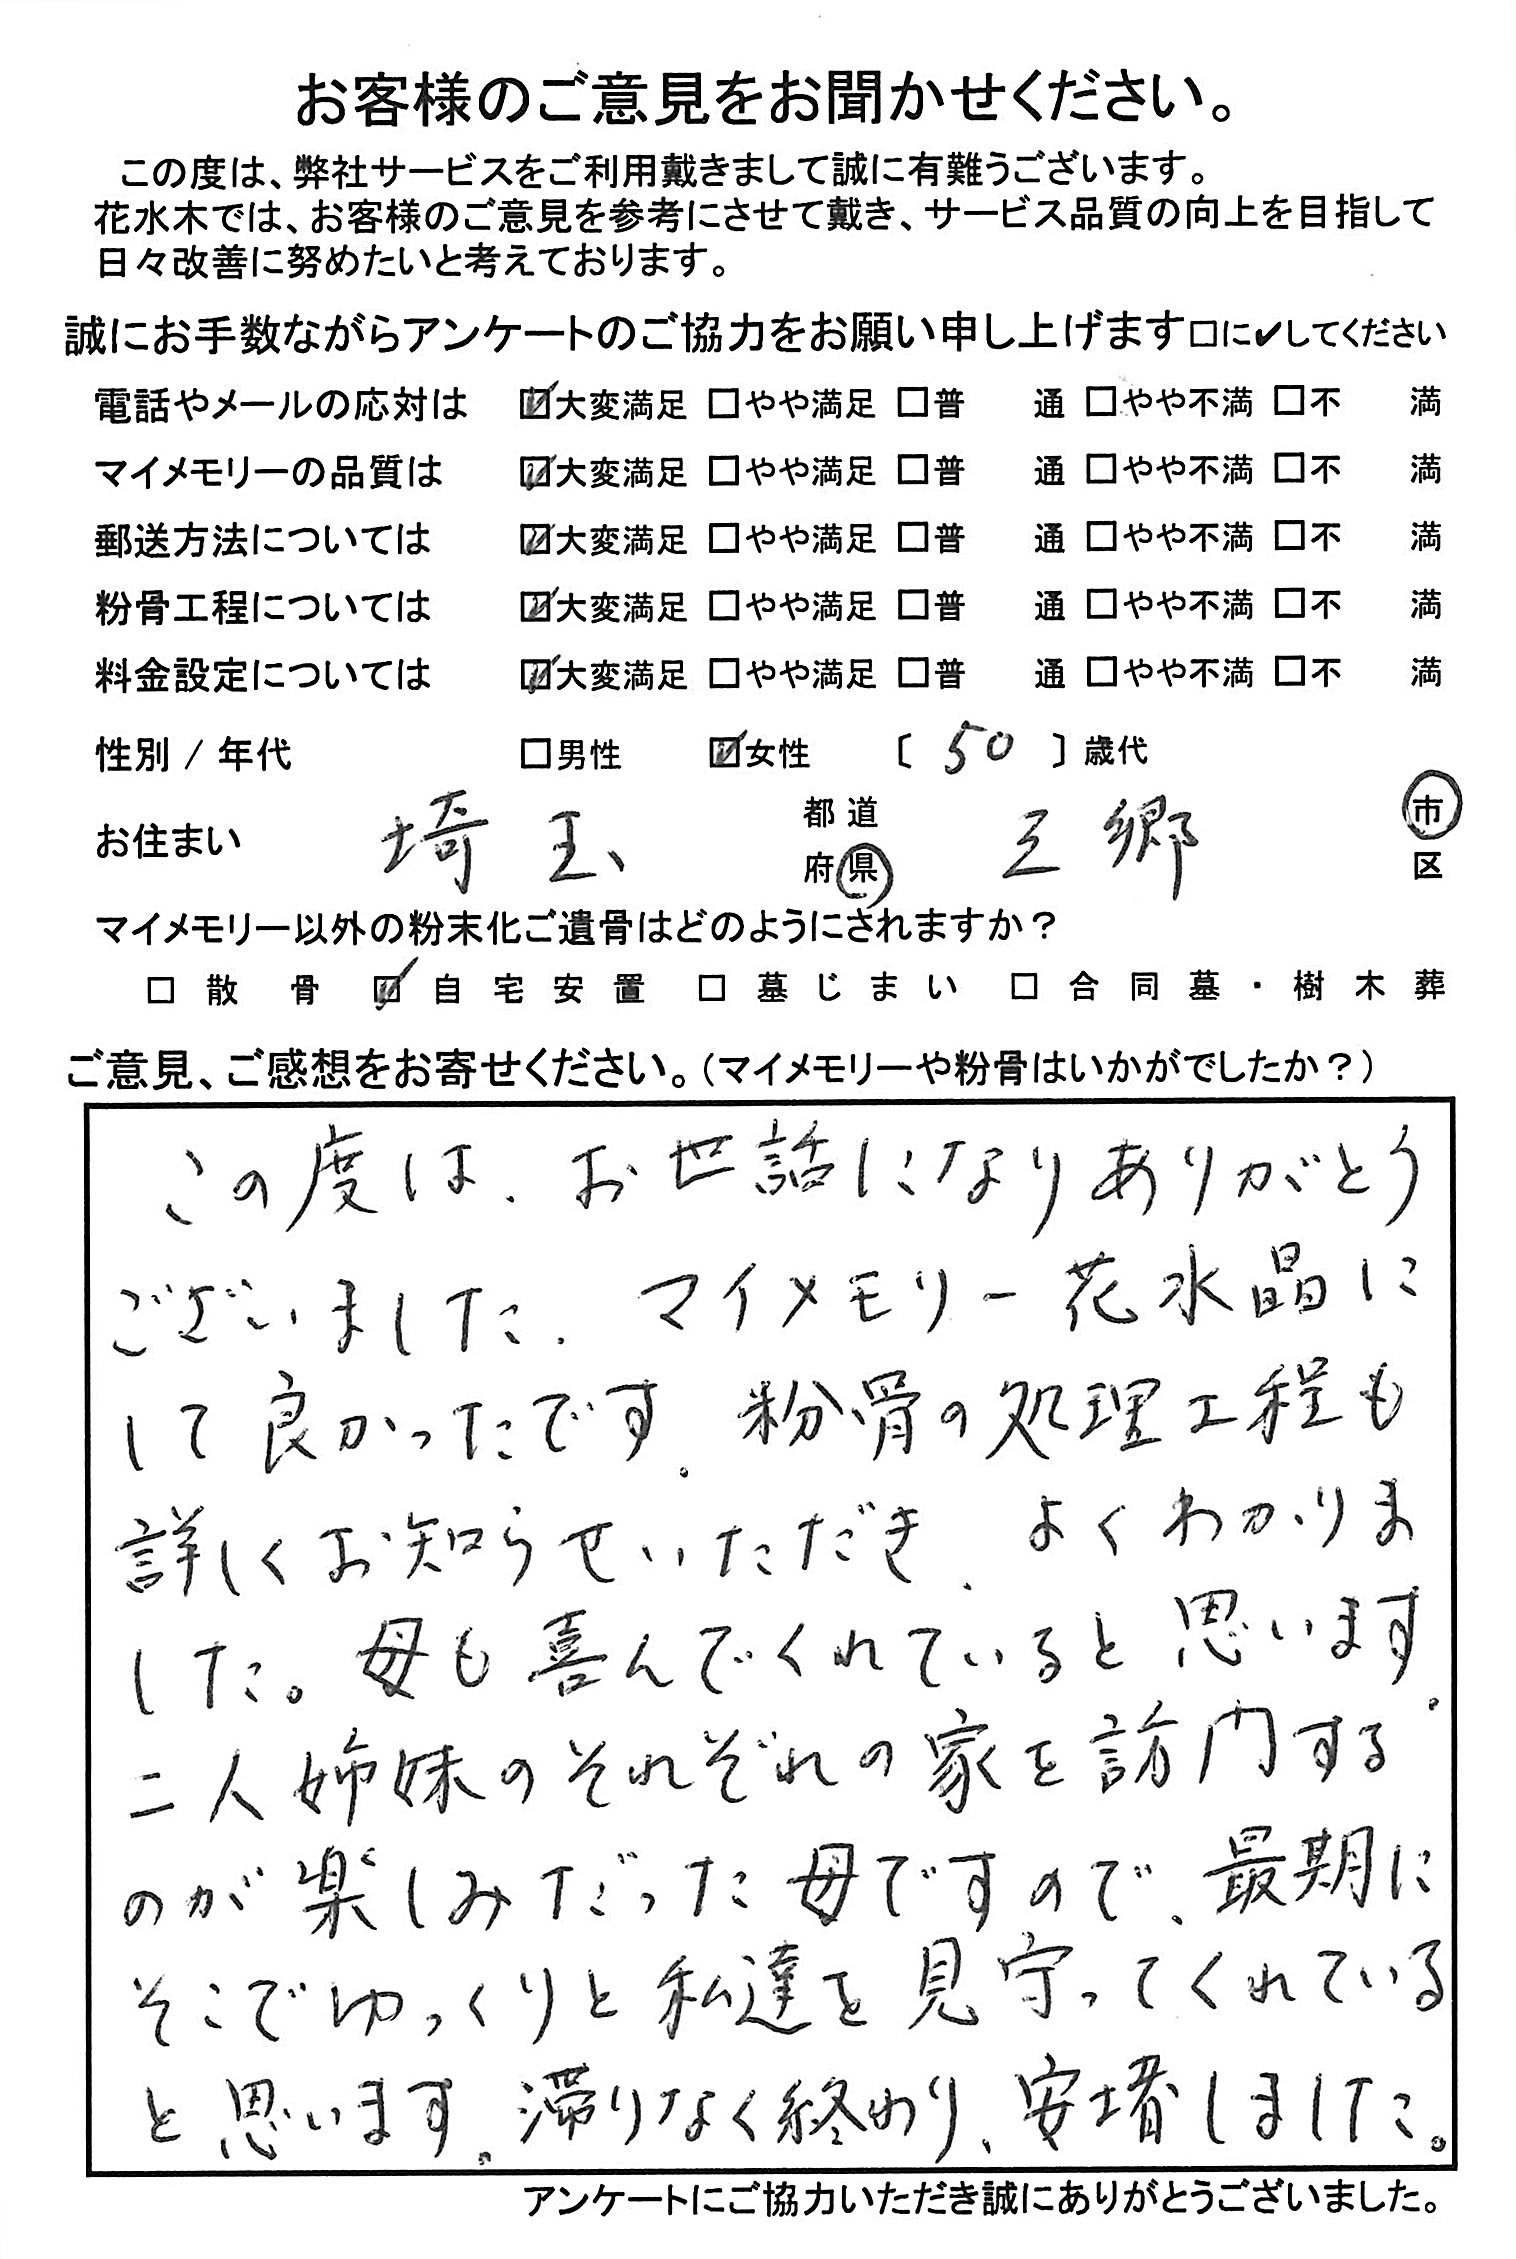 お客様のご意見をお聞かせください。
この度は、弊社サービスをご利用戴きまして誠に有難うございます。
花水木では、お客様のご意見を参考にさせて戴き、サービス品質の向上を目指して
日々改善に努めたいと考えております。
誠にお手数ながらアンケートのご協力をお願い申し上げます□に✔してください
電話やメールの応対は ☑大変満足 □やや満足 □普 通 □やや不満 □不 満
マイメモリーの品質は ☑大変満足 □やや満足 □普 通 □やや不満 □不 満
郵送方法については ☑大変満足 □やや満足 □普 通 □やや不満 □不 満
粉骨工程については ☑大変満足 □やや満足 □普 通 □やや不満 □不 満
料金設定については ☑大変満足 □やや満足 □普 通 □やや不満 □不 満
性別 / 年代 □男性 ☑女性 〔 50 〕歳代
お住まい 埼玉 都道府県 三郷 市区
マイメモリー以外の粉末化ご遺骨はどのようにされますか？
□ 散 骨 ☑ 自宅安置 □ 墓じまい □ 合同墓・樹木葬
ご意見、ご感想をお寄せください。（マイメモリーや粉骨はいかがでしたか？）
この度は、お世話になりありがとう
ございました。マイメモリー花水晶に
して良かったです。粉骨の処理工程も
詳しくお知らせいただき、よくわかりま
した。母も喜んでくれていると思います。
二人姉妹のそれぞれの家を訪門する
のが楽しみだった母ですので、最期に
そこでゆっくりと私達を見守ってくれている
と思います。滞りなく終わり、安堵しました。
アンケートにご協力いただき誠にありがとうございました。